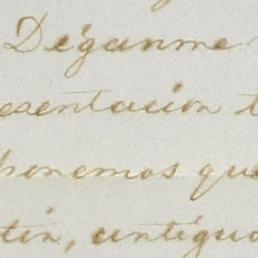 Déganme
esentacion t
ponemos que
tin, antiguo